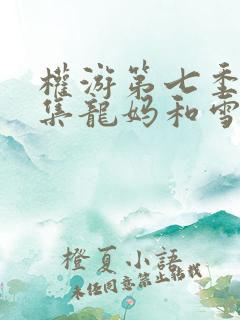 權游第七季
集龍媽和雪
橙夏小語
未经同意禁止转载